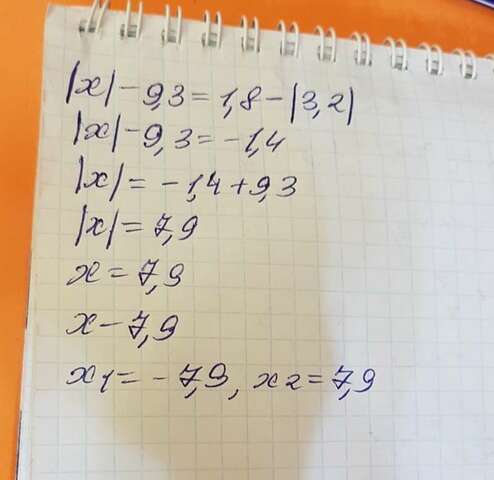 |x| - 9,3 = 1,8 - |3,2|
|x| - 9,3 = -1,4
|x| = -1,4 + 9,3
|x| = 7,9
x = 7,9
x - 7,9
x1 = -7,9, x2 = 7,9